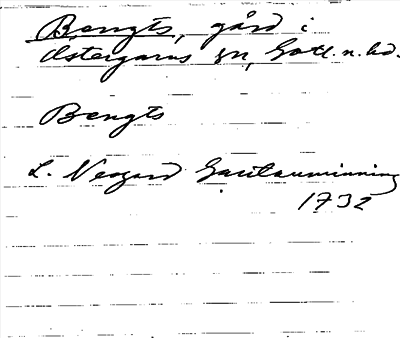 Bengts, gård i
Östergarns sn, Gotl. n. hd.
Bengts
L. Neogard Gautauminning
1732